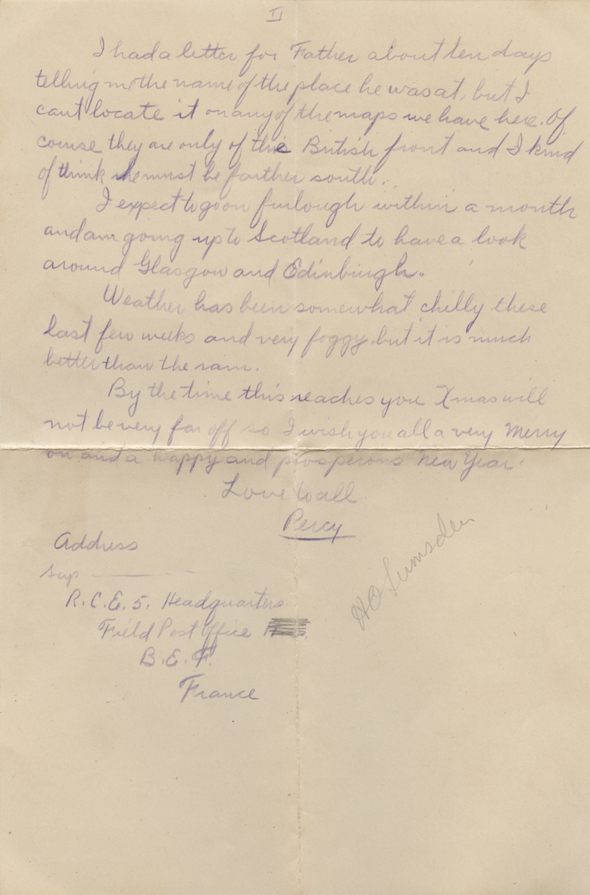 II
I had a letter for Father about ten days
telling me the name of the place he was at, but I
cant locate it on any of the maps we have here. Of
course they are only of the British front and I kind
of think he must be farther south.
I expect to go on furlough within a month
and am going up to Scotland to have a look
around Glasgow and Edinburgh.
Weather has been somewhat chilly these
last few weeks and very foggy but it is much
better than the rain.
By the time this reaches you Xmas will
not be very far off so I wish you all a very Merry
and a happy and prosperous New Year.
Love to all
Percy
Address
Sap
R.C.E. 5. Headquarters
Field Post Office
B.E.F.
France
HO Lumsden